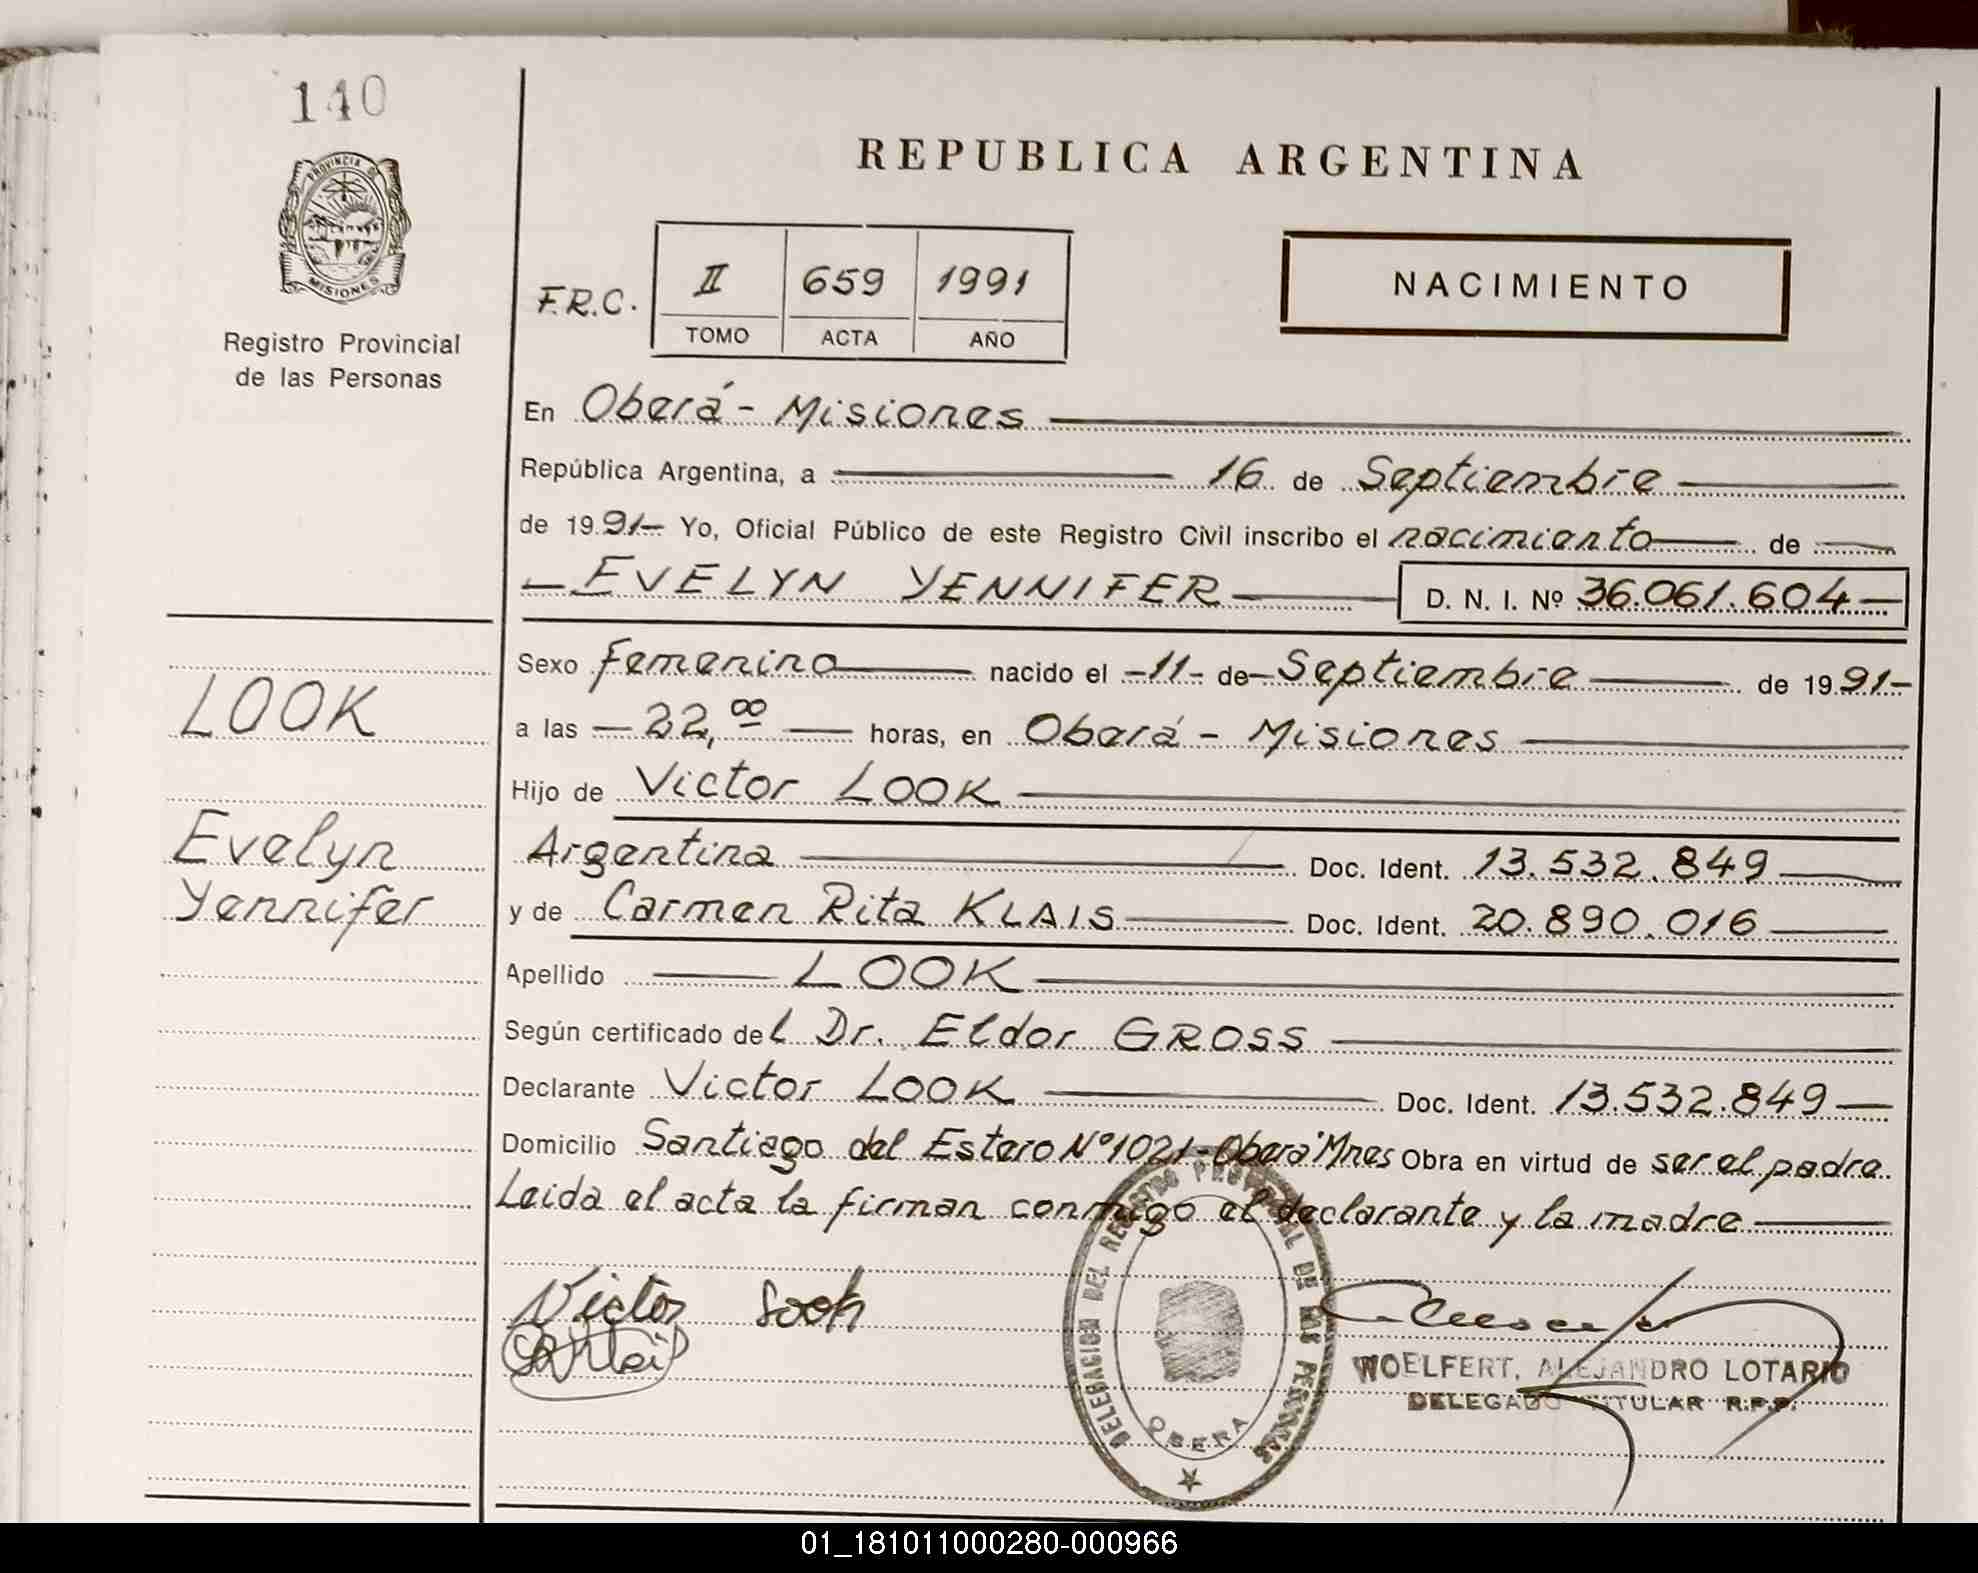 140
PROVINCIA DE
MISIONES
Registro Provincial
de las Personas
REPUBLICA ARGENTINA
F.R.C.
II 659 1991
TOMO ACTA AÑO
NACIMIENTO
En Oberá - Misiones
República Argentina, a 16 de Septiembre
de 1991- Yo, Oficial Público de este Registro Civil inscribo el nacimiento de
- EVELYN YENNIFER D. N. I. Nº 36.061.604-
Sexo femenino nacido el -11- de - Septiembre de 1991-
LOOK
a las - 22,00 horas, en Oberá - Misiones
Hijo de Victor LOOK
Evelyn
Yennifer
Argentina Doc. Ident. 13.532.849
y de Carmen Rita KLAIS Doc. Ident. 20.890.016
Apellido LOOK
Según certificado del Dr. Eldor GROSS
Declarante Victor LOOK Doc. Ident. 13.532.849-
Domicilio Santiago del Estero Nº 1021-Oberá Mnes Obra en virtud de ser el padre
Leida el acta la firman conmigo el declarante y la madre
Victor Look
DELEGACION DEL REGISTRO PROVINCIAL DE LAS PERSONAS
OBERA
WOELFERT, ALEJANDRO LOTARIO
DELEGADO TITULAR R.P.P.
01_181011000280-000966